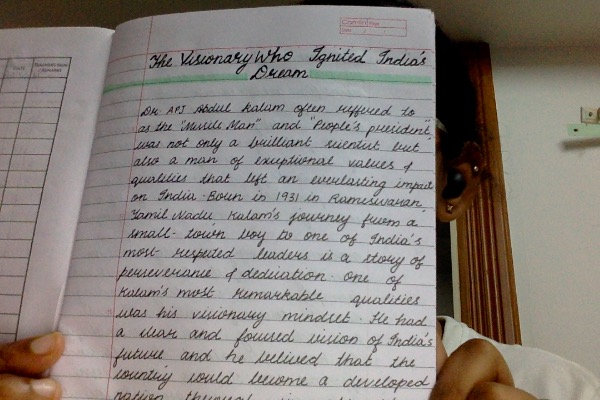 DATE
TEACHER'S SIGN/ REMARKS
Date
The Visionary Who Ignited India's
Dream
Dr. APJ Abdul Kalam often reffered to
as the "Missile Man" and "People's president",
was not only a brilliant scientist but
also a man of exceptional values &
qualities that left an everlasting impact
on India. Born in 1931 in Rameswaram,
Tamil Nadu, Kalam's journey from a
small-town boy to one of India's
most respected leaders is a story of
perseverance & dedication. One of
Kalam's most remarkable qualities
was his visionary mindset. He had
a clear and focused vision of India's
future and he belived that the
country could become a developed
nation through